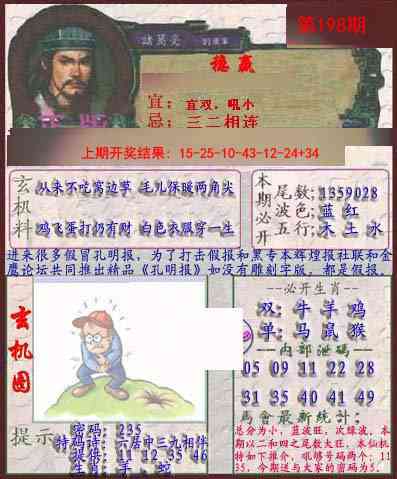 第198期
諸葛亮
的传家
稳赢
宜：宜双，吼小
忌：三二相连
上期开奖结果：15-25-10-43-12-24+34
玄机料
从来不吃窝边草 毛儿保暖两角尖
鸡飞蛋打仍有财 白色衣服穿一生
本期必开
尾数：1359028
波色：蓝 红
五行：木 土 水
进来很多假冒孔明报，为了打击假报和黑专本辉煌报社联和金
鹰论坛共同推出精品《孔明报》如没有雕刻字版，都是假报。
玄机图
--必开生肖--
双：牛 羊 鸡
单：马 鼠 猴
--内部泄码--
05 09 11 22 28
31 35 40 41 49
馬會最新統计：
总分为小，蓝波旺，次绿波，本
期以二和四之尾数大旺，本仙机
特如下推介，吼够号码两个：11
35，今期送与大家的密码为5.
提示
密码：235
特码诗：六居中三九相伴
提供：11 12 35 46
生肖：羊、蛇